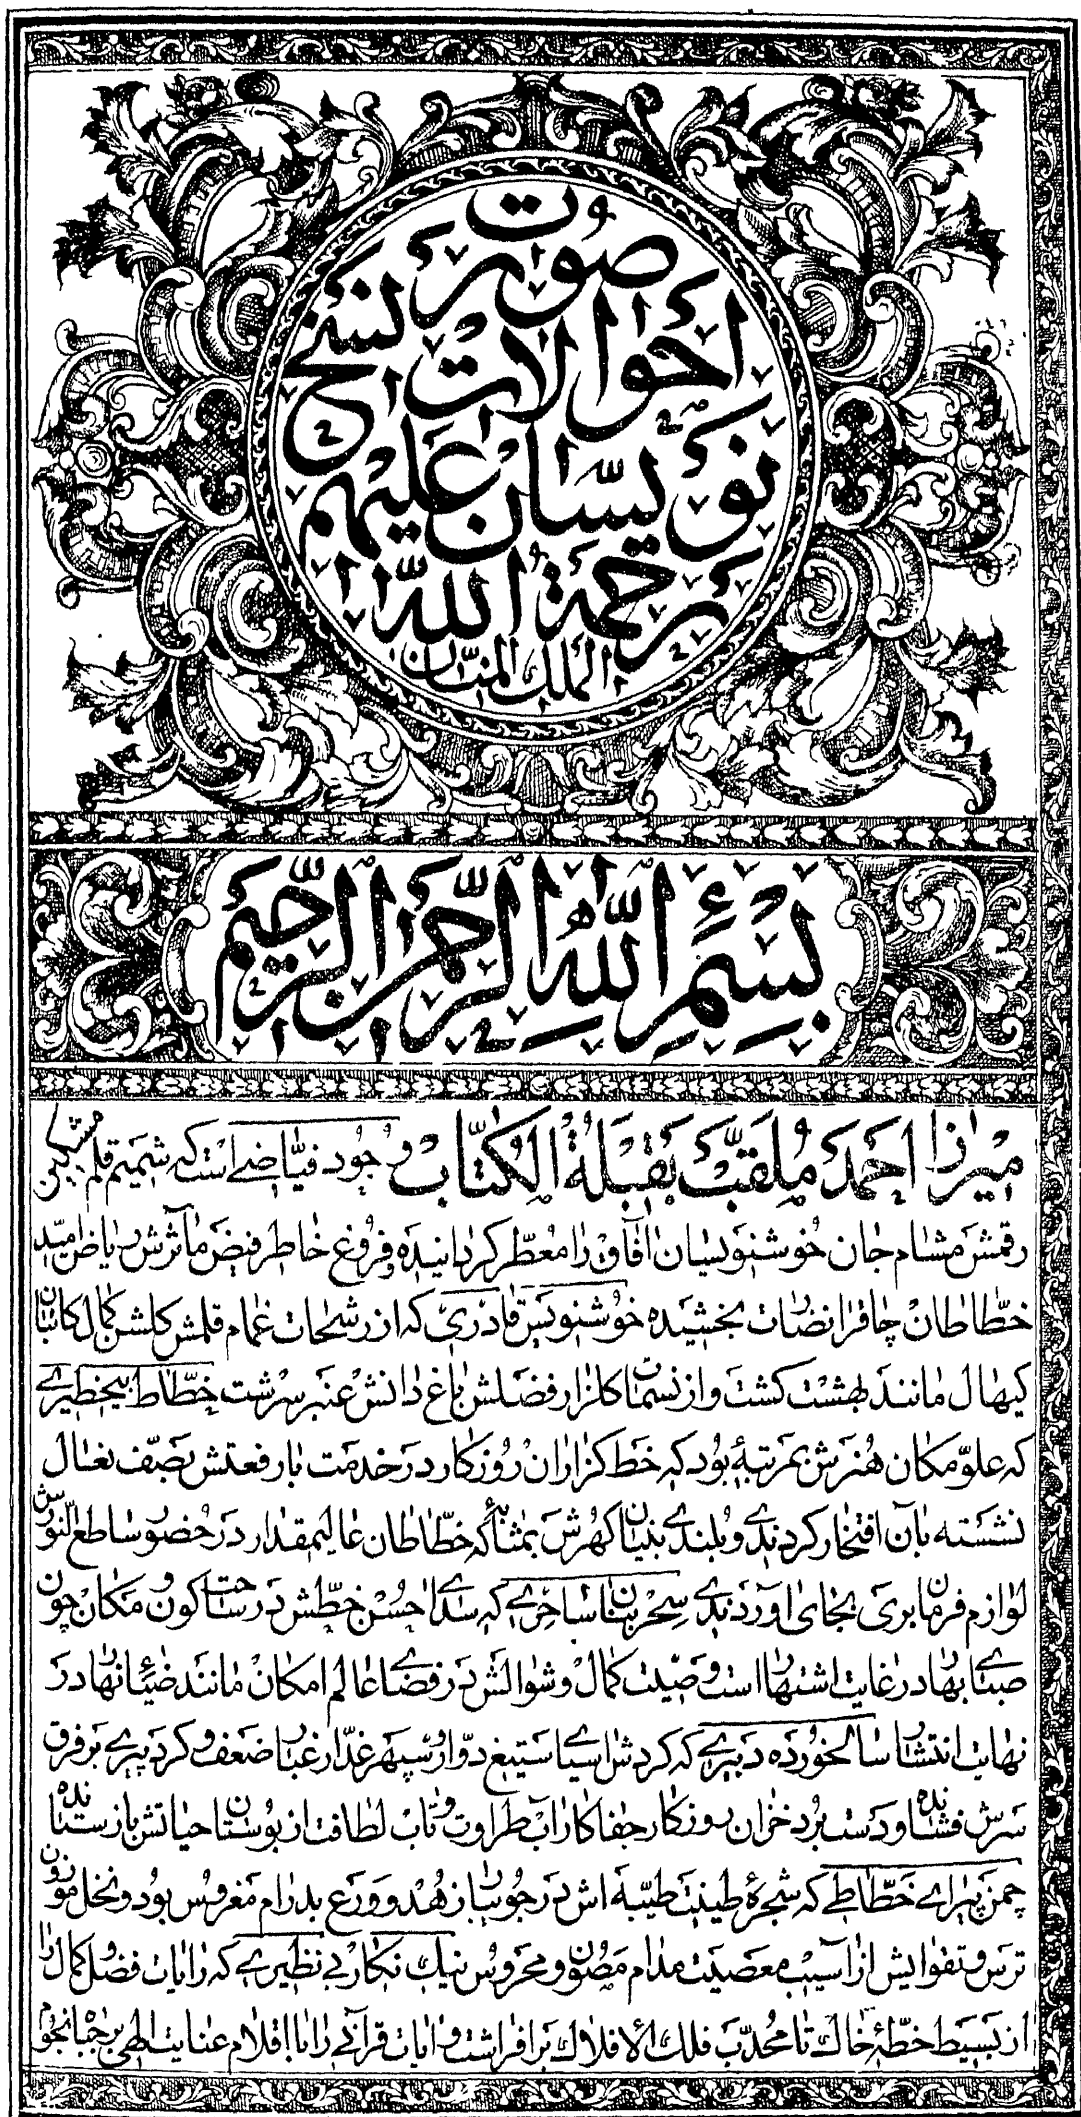 صورت
احوالات نسخ
نویسان علیهم
رحمة الله
الملک المنان
بسم الله الرحمن الرحیم
میرزا احمد ملقب بقبلة الکتاب وجود فیاضی است که شمیم قلم مشکین
رقمش مشام جان خوشنویسان آفاق را معطر کردانیده و فروغ خاطر فیض مآثرش ریاض امید
خطاطان چاقرا نضارت بخشیده خوشنویس قادری که از رشحات غمام قلمش کلشن کمال کاتبان
کیهان مانند بهشت کشت و از نسمات کلزار فضلش باغ دانش عنبر سرشت خطاط بیخطیری
که علو مکان هنرش بمرتبهٔ بود که خط کزاران روزکار در خدمت بارفعتش بصف نعال
نشسته بآن افتخار کردندی و بلندی بنیان کهرش بمثابهٔ که خطاطان عالیمقدار در حضور ساطع النورش
لوازم فرمان بری بجای آوردندی سحر بنان ساحری که صدای حسن خطش در ساحت کون و مکان چون
صبای بهار در غایت اشتهار است و صیت کمال و شوالش در فضای عالم امکان مانند ضیای نهار در
نهایت انتشار سالخورده دبیری که کردش آسیای ستیغ دوار و سپهر غدار غبار ضعف و کرد پیری بر فرق
سرش فشانده و دست برد خزان روزکار جفاکار آب طراوت و تاب لطافت از بوستان حیاتش باز ستانده
چمن پیرای خطاطی که شجرهٔ طینت طیبه اش در جویبار زهد و ورع بدرام مغروس بود و نخل موزون
ترس و تقوایش از آسیب معصیت مدام مصون و محروس نیک نکار بی نظیری که رایات فضل و کمال را
از بسیط خطهٔ خاک تا محدب فلک الافلاک بر افراشت و آیات قرآنی را با اقلام عنایت الهی بر جباه نجوم